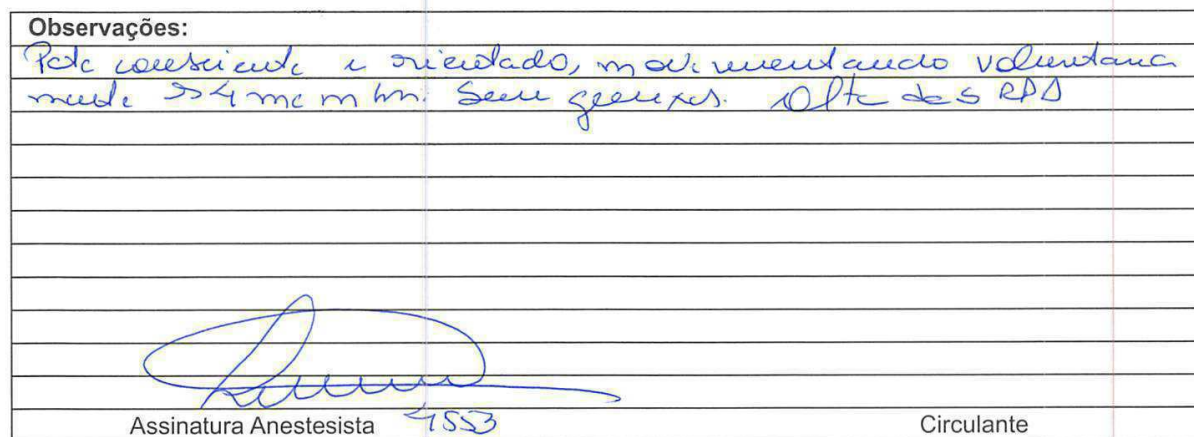 Observações:
Pcte consciente e orientado, movimentando voluntaria
mente 4 membros. Sem queixas. Alta da SRPA
Assinatura Anestesista 4553 Circulante